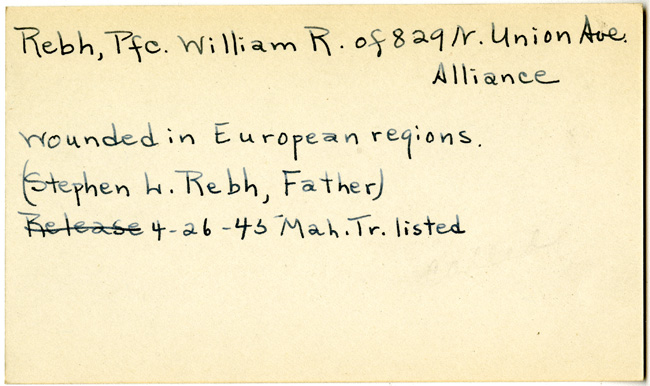 Rebh, Pfc. William R. of 829 N. Union Ave.
Alliance
wounded in European regions.
(Stephen L. Rebh, Father)
Release 4-26-45 Mah. Tr. listed